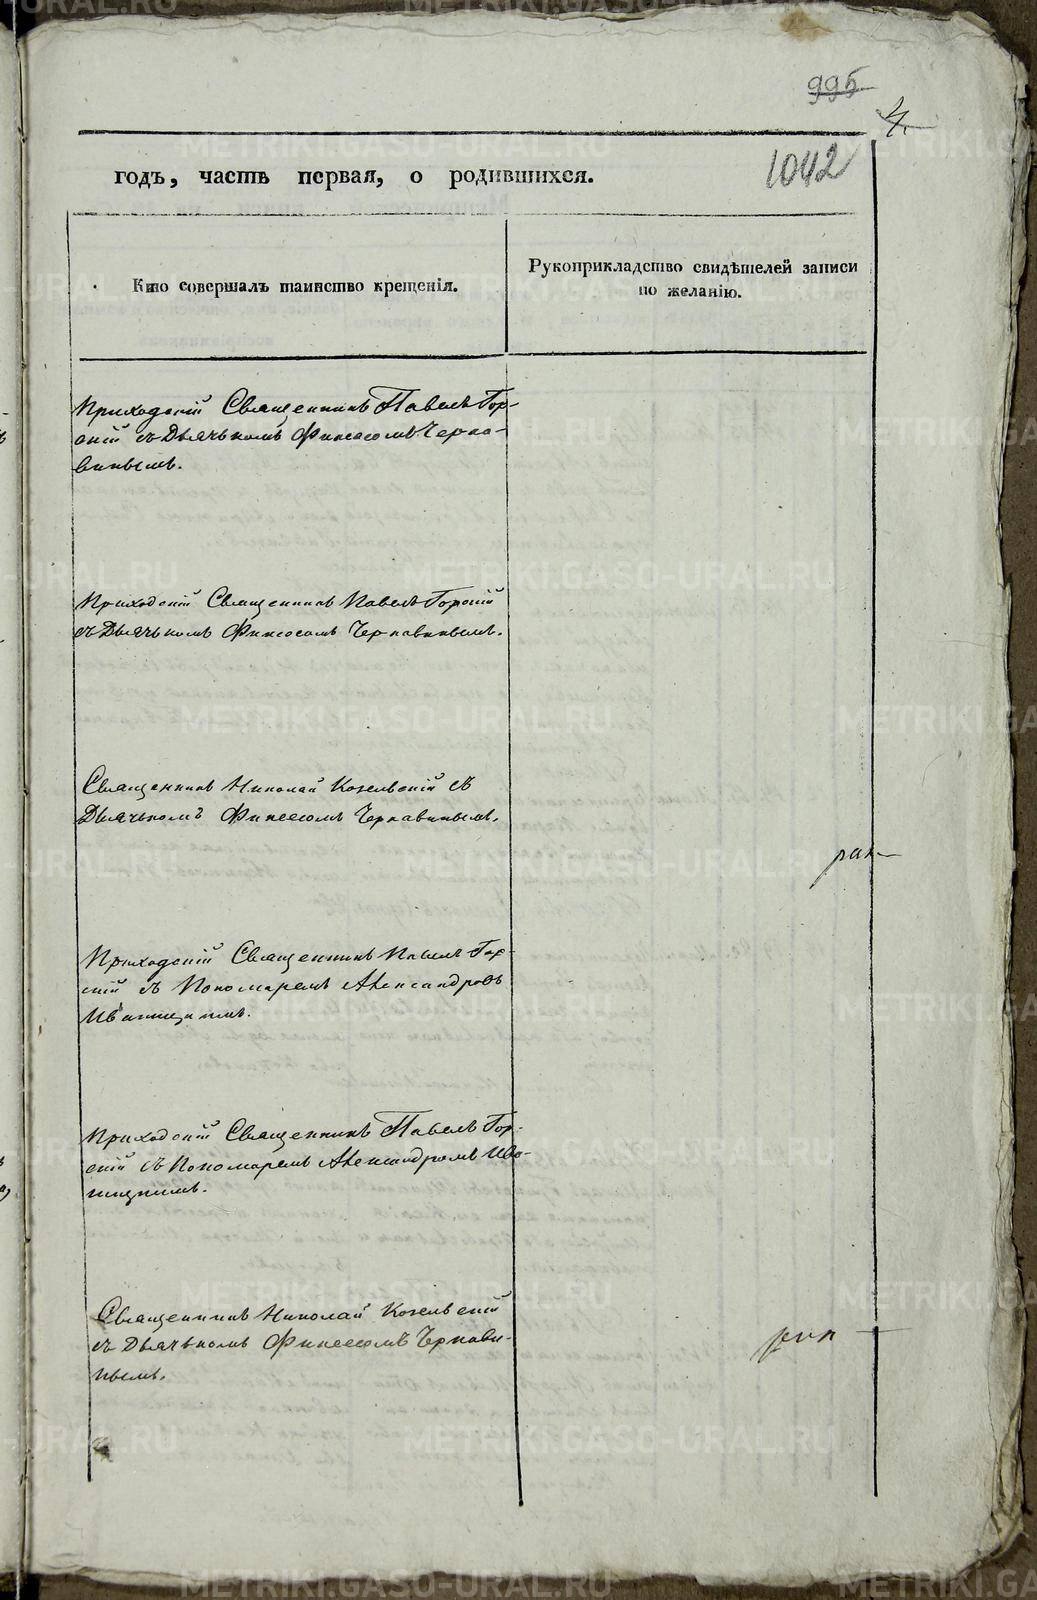 995
4.
1042
годъ, часть первая, о родившихся.
Кто совершалъ таинство крещенія.
Рукоприкладство свидѣтелей записи
по желанію.
Приходскій Священникъ Павелъ Гор-
скій съ Дьячькомъ Финеесомъ Черна-
винымъ.
Приходскій Священникъ Павелъ Горскій
съ Дьячькомъ Финеесомъ Чернавинымъ.
Священникъ Николай Козельскій съ
Дьячькомъ Финеесомъ Чернавинымъ.
Приходскій Священникъ Павелъ Гор-
скій съ Пономаремъ Александровъ
Приходскій Священникъ Павелъ Гор-
скій съ Пономаремъ Александромъ
Священникъ Николай Козельскій
съ Дьячькомъ Финеесомъ Чернави-
нымъ.
METRIKI.GASO-URAL.RU